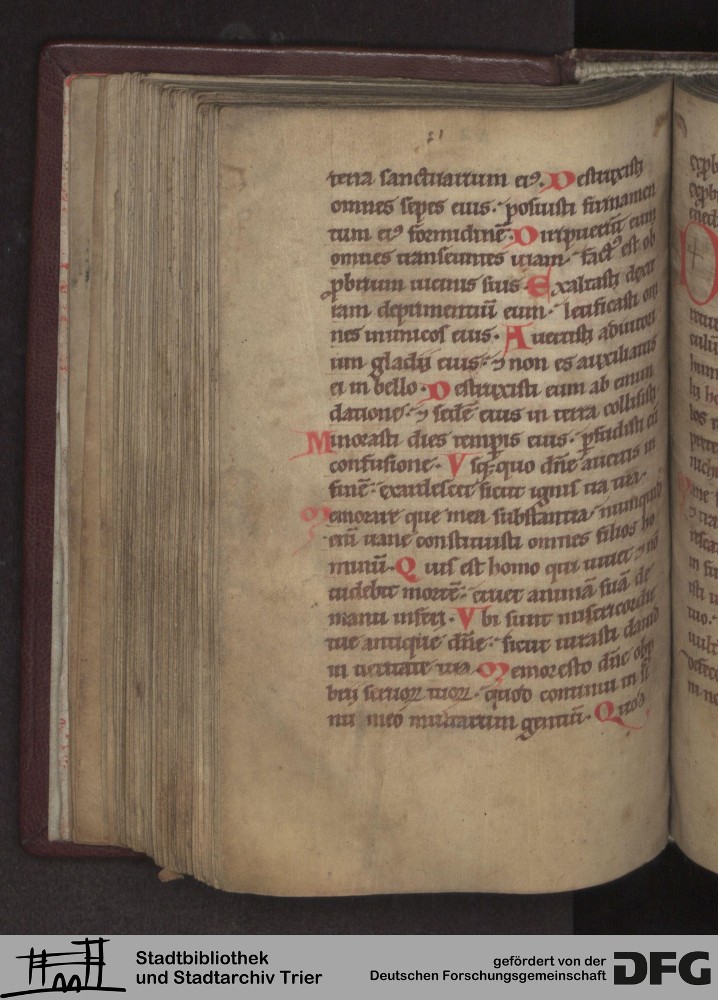 terra sanctuarium eiꝰ. Destruxisti
omnes sepes eius. posuisti firmamen
tum eiꝰ formidinē. Diripuerūt eum
omnes transeuntes uiam. factꝰ est ob
ꝓbrium uicinis suis. Exaltasti dext
ram deprimentiū eum. letificasti om
nes inimicos eius. Auertisti adiutori
um gladii eius. ⁊ non es auxiliatus
ei in bello. Destruxisti eum ab emun
datione. ⁊ sedē eius in terra collisisti
Minorasti dies temporis eius. ꝑfudisti eū
confusione. Vsq; quo dn̄e auertis in
finē. exardescet sicut ignis ira tua.
Memorare que mea substantia. nunquid
enī uane constituisti omnes filios ho
minū. Quis est homo qui uiuet ⁊ nō
uidebit mortē. eruet animā suā de
manu inferi. Vbi sunt misericordie
tue antique dn̄e. sicut iurasti dauid
in ueritate tua. Memoresto dn̄e obꝓ
brii seruoꝝ tuoꝝ. quod continui in si
nu meo multarum gentiū. Quod
21
Stadtbibliothek
und Stadtarchiv Trier
gefördert von der
Deutschen Forschungsgemeinschaft
DFG